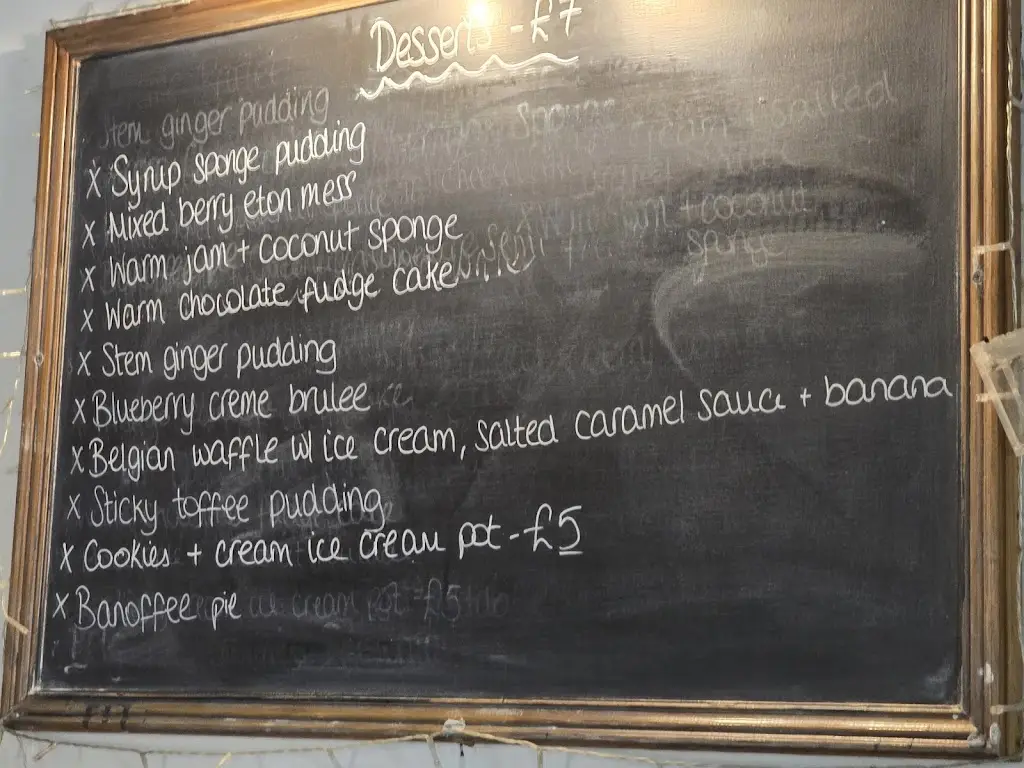 Desserts - £7
Stem ginger pudding
x Syrup sponge pudding
x Mixed berry eton mess
x Warm jam + coconut sponge
x Warm chocolate fudge cake
x Stem ginger pudding
x Blueberry creme brulee
x Belgian waffle w/ ice cream, salted caramel sauce + banana
x Sticky toffee pudding
x Cookies + cream ice cream pot - £5
x Banoffee pie